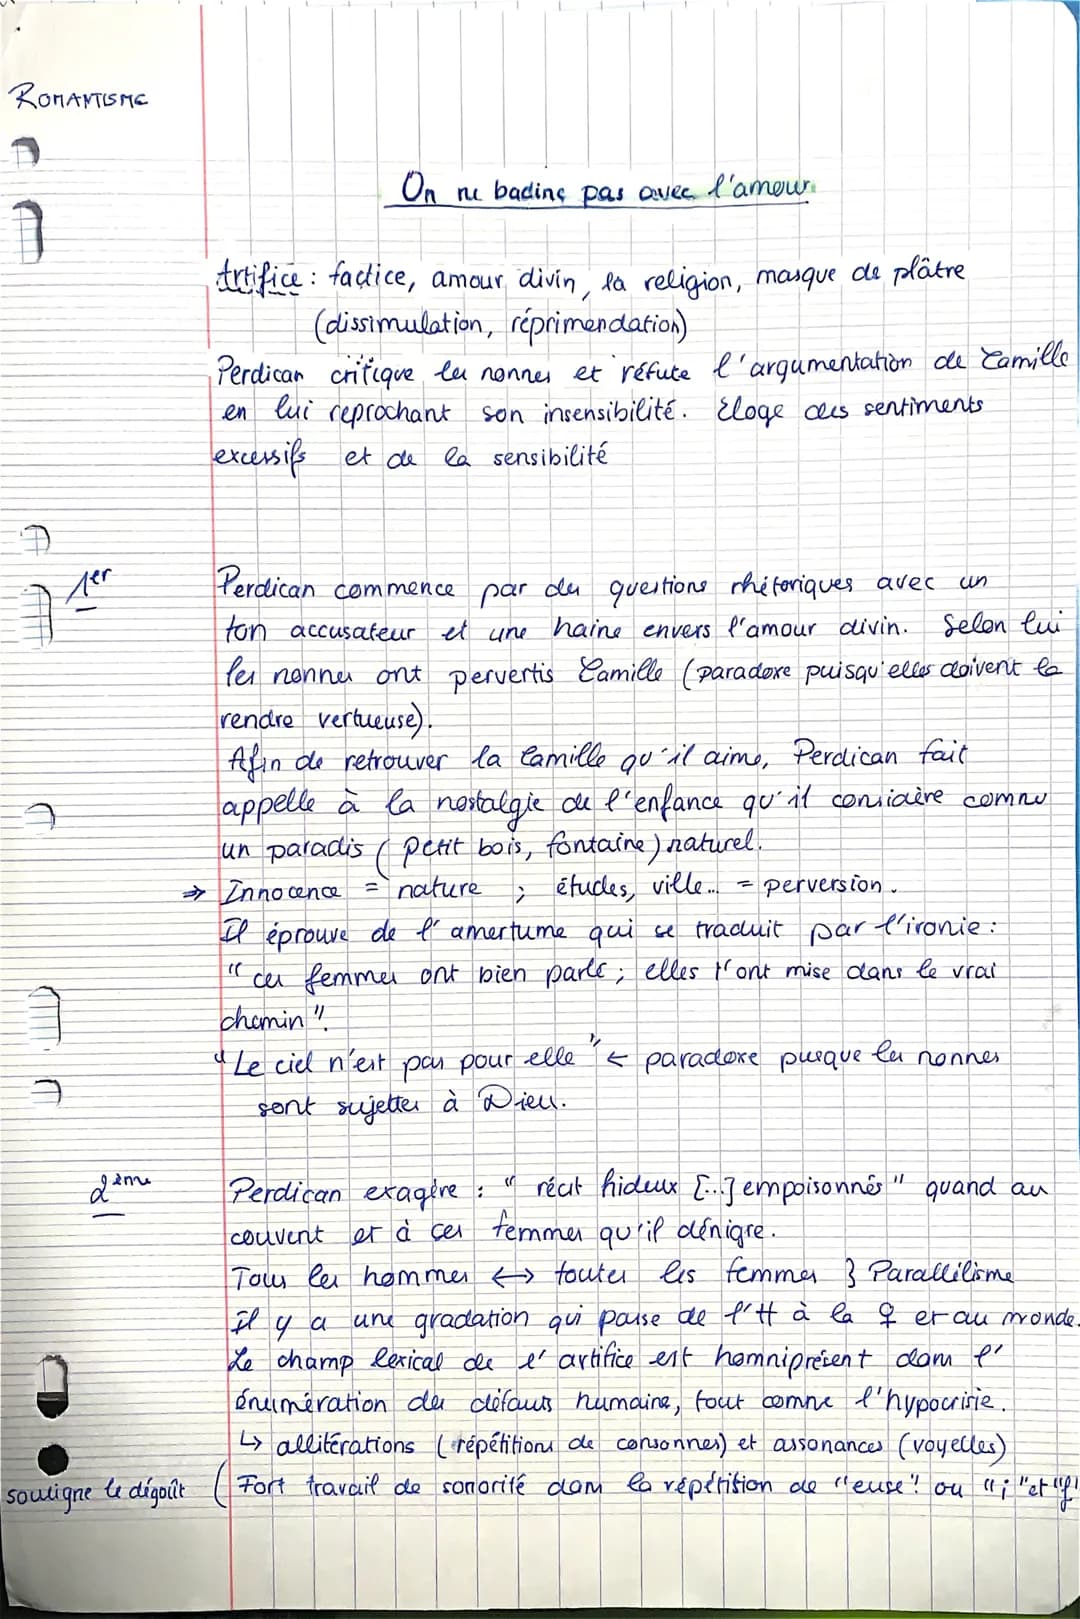 ROMANTISME
On ne badine pas avec l'amour
Artifice : factice, amour divin, la religion, masque de plâtre
(dissimulation, réprimendation)
Perdican critique les nonnes et réfute l'argumentation de Camille
en lui reprochant son insensibilité. Éloge des sentiments
excessifs et de la sensibilité
1er
Perdican commence par des questions rhétoriques avec un
ton accusateur et une haine envers l'amour divin. Selon lui
les nonnes ont pervertis Camille (paradoxe puisqu'elles doivent la
rendre vertueuse).
Afin de retrouver la Camille qu'il aime, Perdican fait
appelle à la nostalgie de l'enfance qu'il considère comme
un paradis (petit bois, fontaine) naturel.
⇒ Innocence = nature ; études, ville... = perversion.
Il éprouve de l'amertume qui se traduit par l'ironie :
"ces femmes ont bien parlé ; elles t'ont mise dans le vrai
chemin".
"Le ciel n'est pas pour elle" ← paradoxe puisque les nonnes
sont sujettes à Dieu.
2ème
Perdican exagère : "récit hideux [...] empoisonnés" quand au
couvent et à ces femmes qu'il dénigre.
Tous les hommes ↔ toutes les femmes } Parallélisme
Il y a une gradation qui passe de l'H à la ♀ et au monde.
Le champ lexical de l'artifice est homniprésent dans l'
énumération des défauts humains, tout comme l'hypocrisie.
↳ allitérations (répétitions de consonnes) et assonances (voyelles)
souligne le dégoût ( Fort travail de sonorité dans la répétition de "euse" ou "i" et "f"